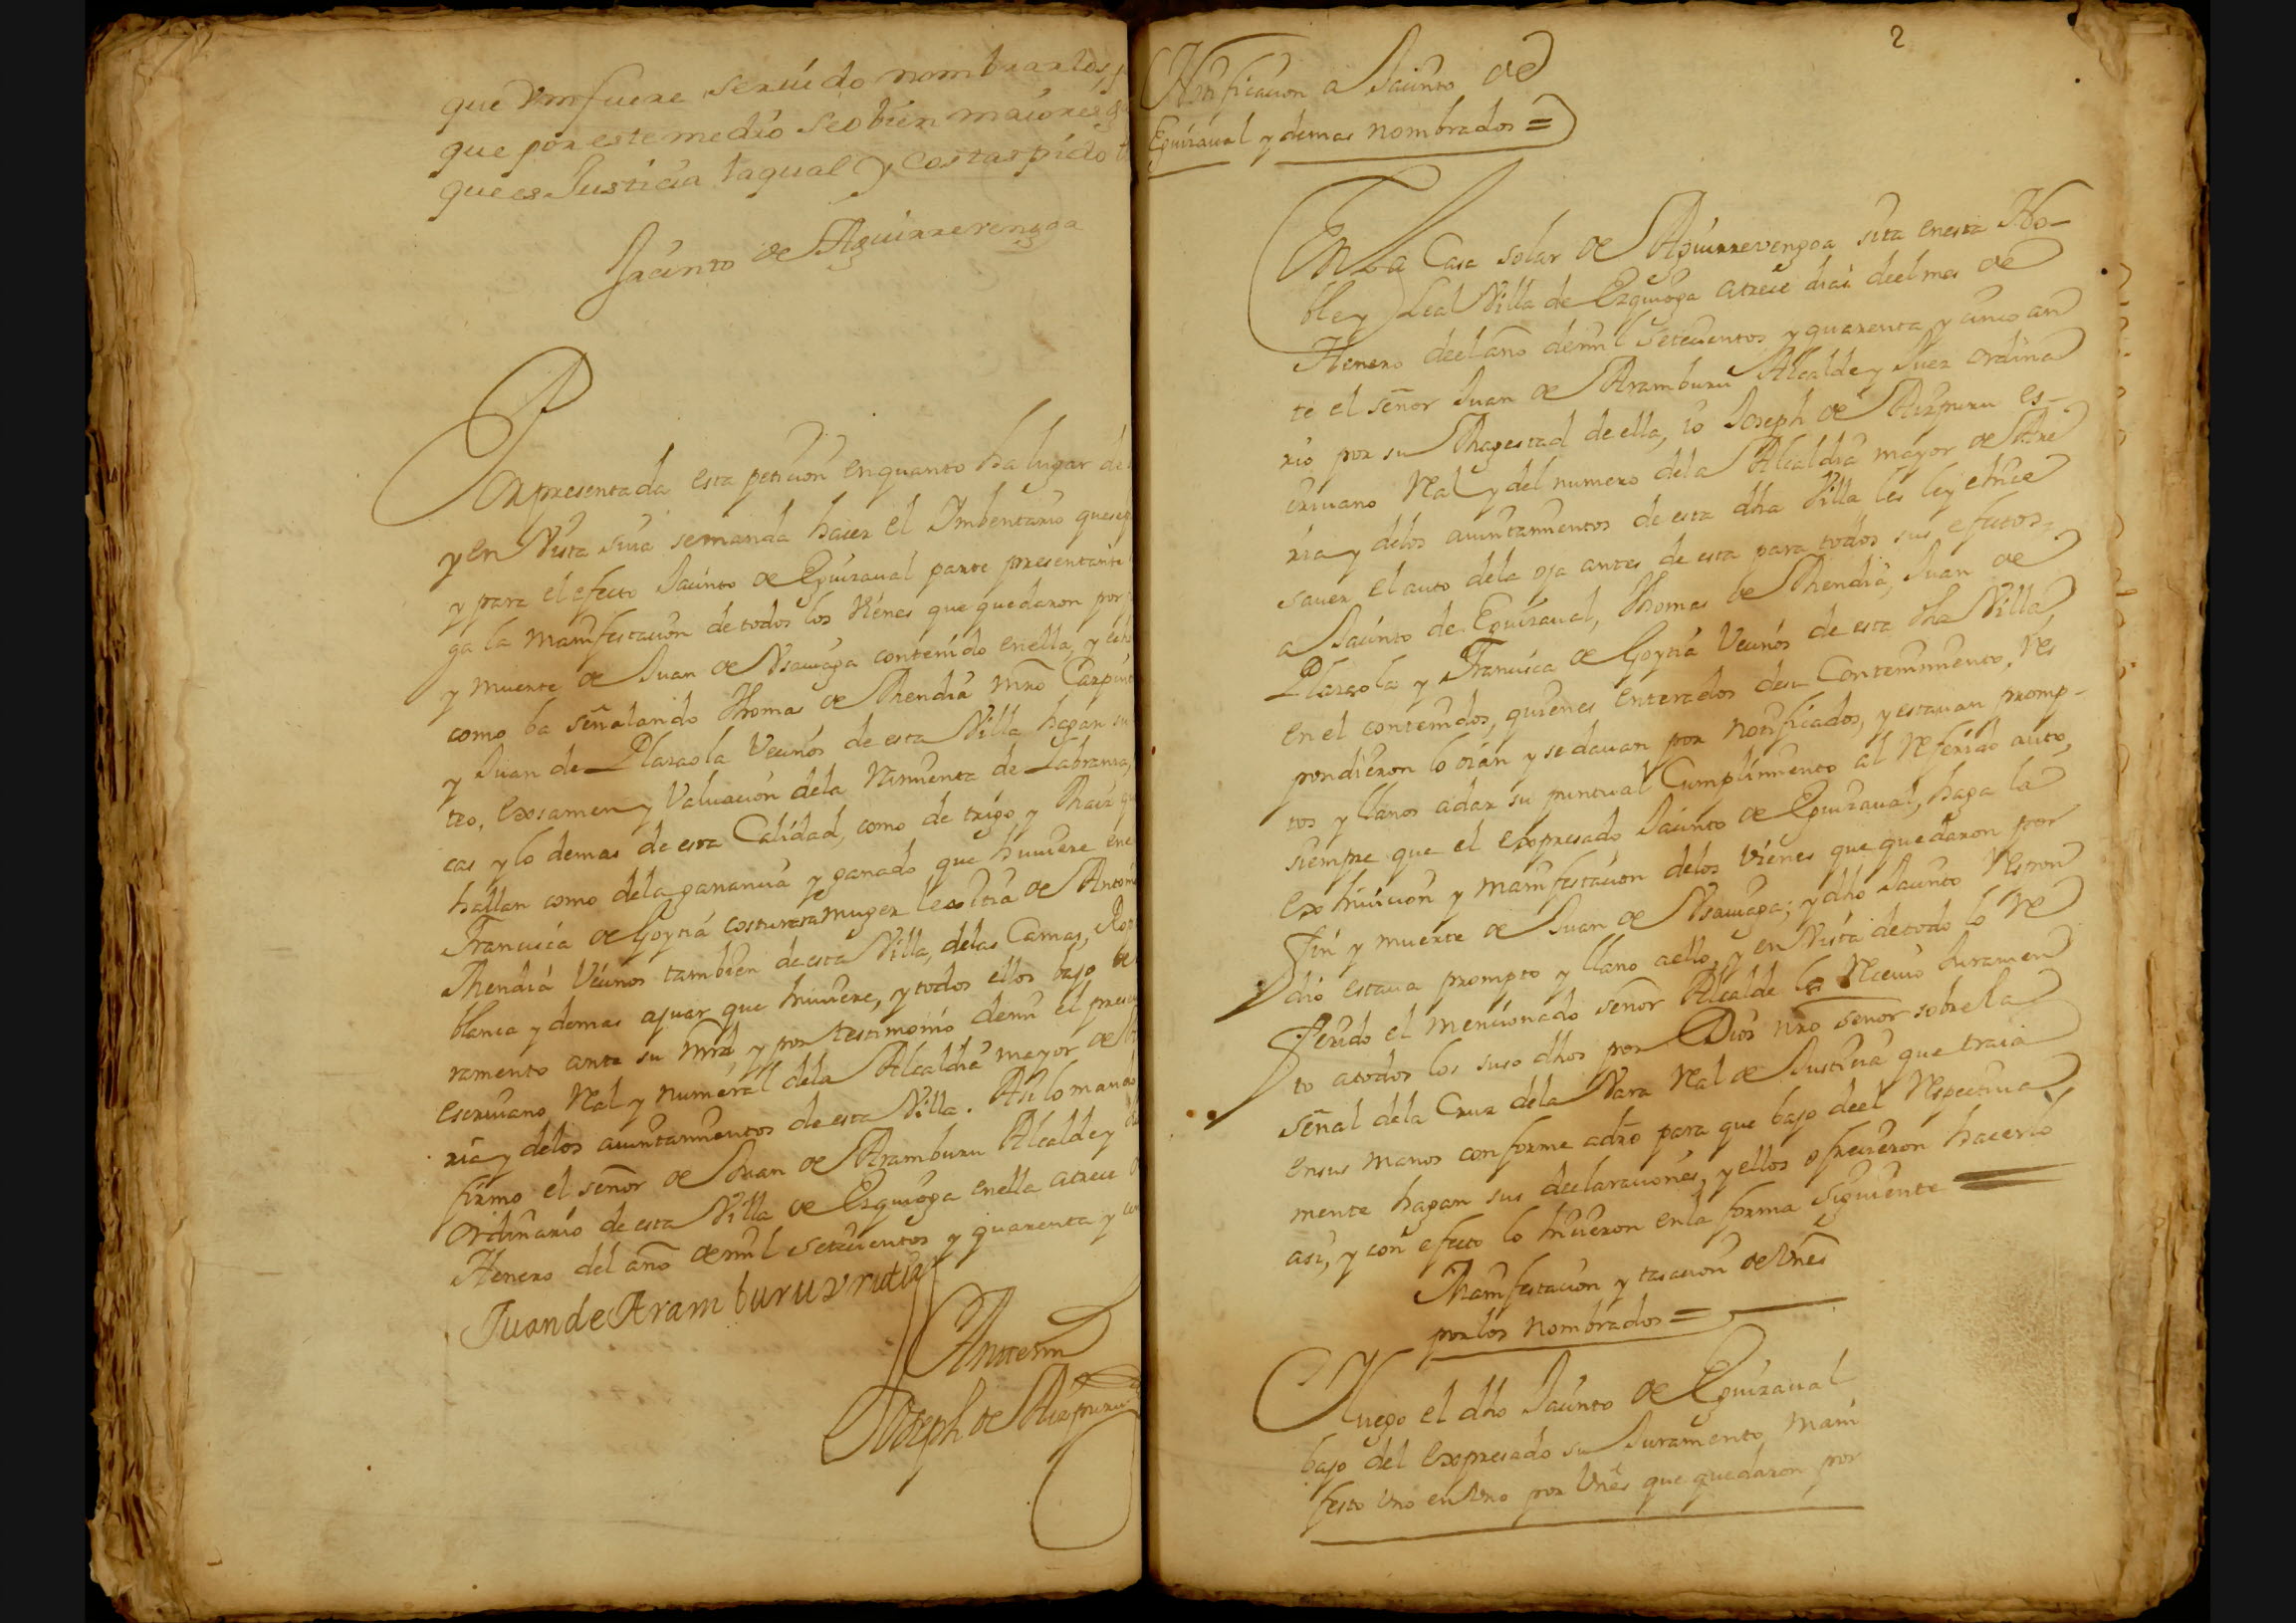 que Vm fuere seruido nombrarlos, p
que por este medio se obien maiores g
que es Justicia la qual y costas pido
Jacinto de Aguirrerengoa
Por presentada esta peticion en quanto ha lugar de
y en Vista suia se manda hacer el Imbentario que se
y para el efecto Jacinto de Eguizaual parte presentante
ga la manifestacion de todos los Vienes que quedaron por
y muerte de Juan de Vsauiaga contenido en ella, y
como ba señalando Thomas de Mendia mro Carpint
y Juan de Plazaola Vecinos de esta Villa hagan su
tro, Exsamen y Valuacion dela Rimienta de Labranza,
cas y lo demas de esta Calidad, como de trigo y Maiz q
hallan como dela ganancia y ganado que huuiere en
Francisca de Goytia costurera muger lexitima de Antonio
Mendia Vecinos tambien de esta Villa, delas Camas, Rop
blanca y demas ajuar que huuiere, y todos ellos bajo de
ramento ante su mrd, y por testimonio de mi el pres
escriuano Real y numeral dela Alcaldia mayor de
ria y delos aiuntamientos de esta Villa. Asi lo mando
firmo el señor de Juan de Aramburu Alcalde y
Ordinario de esta Villa de Ezquioga en ella a trece
Henero del año de mil setecientos y quarenta y
Juan de Aramburu
Ante mi
Joseph de Aizpuru
2
Notificacion a Jacinto de
Eguizaual y demas nombrados =
En La Casa solar de Aguirrerengoa sita en esta No-
ble y Leal Villa de Ezquioga a trece dias de el mes de
Henero de el año de mil setecientos y quarenta y cinco an
te el señor Juan de Aramburu Alcalde y Juez ordina
rio por su Magestad de ella, io Joseph de Aizpuru es-
criuano Real y del numero dela Alcaldia mayor de Are
ria y delos aiuntamientos de esta dha Villa les ley e hice
sauer el auto dela oja antes de esta para todos sus efectos,
a Jacinto de Eguizaual, Thomas de Mendia, Juan de
Plazaola y Francisca de Goytia Vecinos de esta dha Villa,
en el contenidos, quienes enterados de su Contenimiento, Res
pondieron lo oian y se dauan por notificados, y estauan promp-
tos y llanos a dar su puntual Cumplimiento al Referido auto,
siempre que el expresado Jacinto de Eguizaual, haga la
exhiuicion y manifestacion delos Vienes que quedaron por
fin y muerte de Juan de Vsauiaga; y dho Jacinto Respon
dio estaua prompto y llano a ello, y en Vista de todo lo Re
ferido el mencionado señor Alcalde les Reciuio Juramen
to a todos los suso dhos por Dios nro señor sobre la
señal dela Cruz dela Vara Real de Justicia que traia
en sus manos conforme a dro para que bajo de el Respectiua
mente hagan sus declaraciones, y ellos ofrecieron hacerlo
asi, y con efecto lo hicieron en la forma Siguiente
Manifestacion y tasacion de Vnes
por los nombrados =
Luego el dho Jacinto de Eguizaual
bajo del expresado su Juramento mani
festo Vno en Vno por Vnes que quedaron por